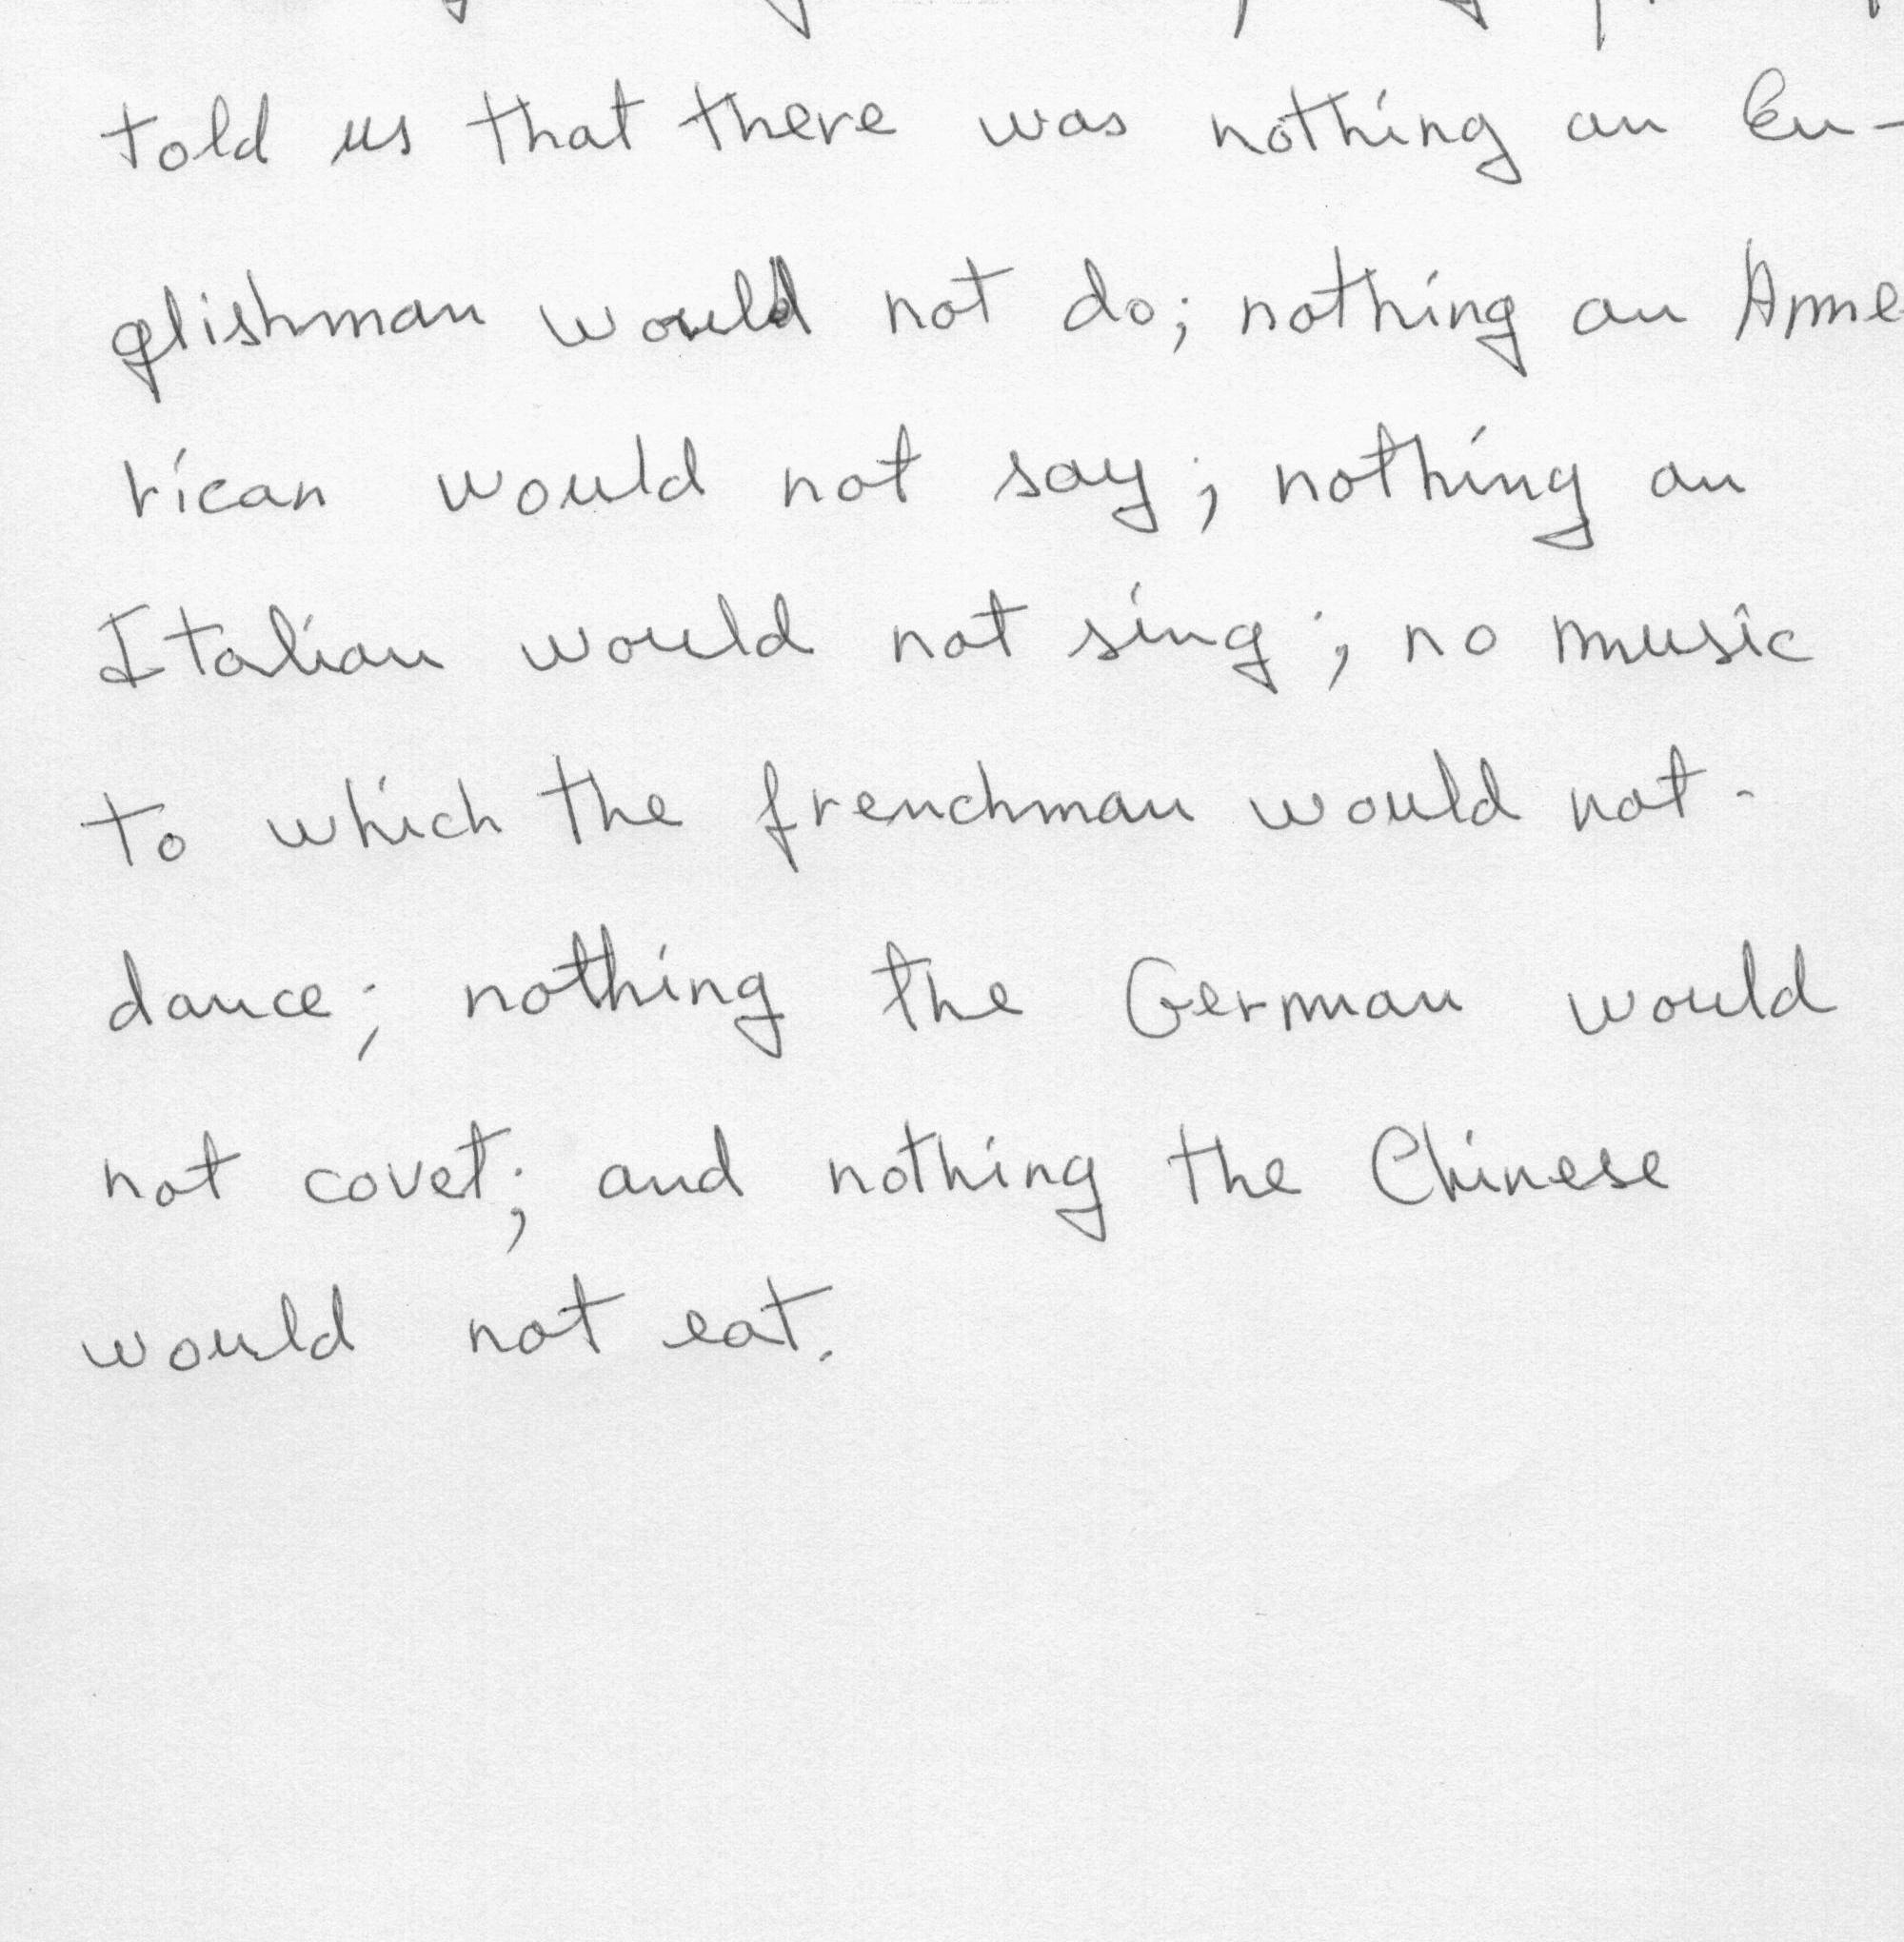 told us that there was nothing an En-
glishman would not do; nothing an Ame
rican would not say; nothing an
Italian would not sing; no music
to which the frenchman would not-
dance; nothing the German would
not covet; and nothing the Chinese
would not eat.